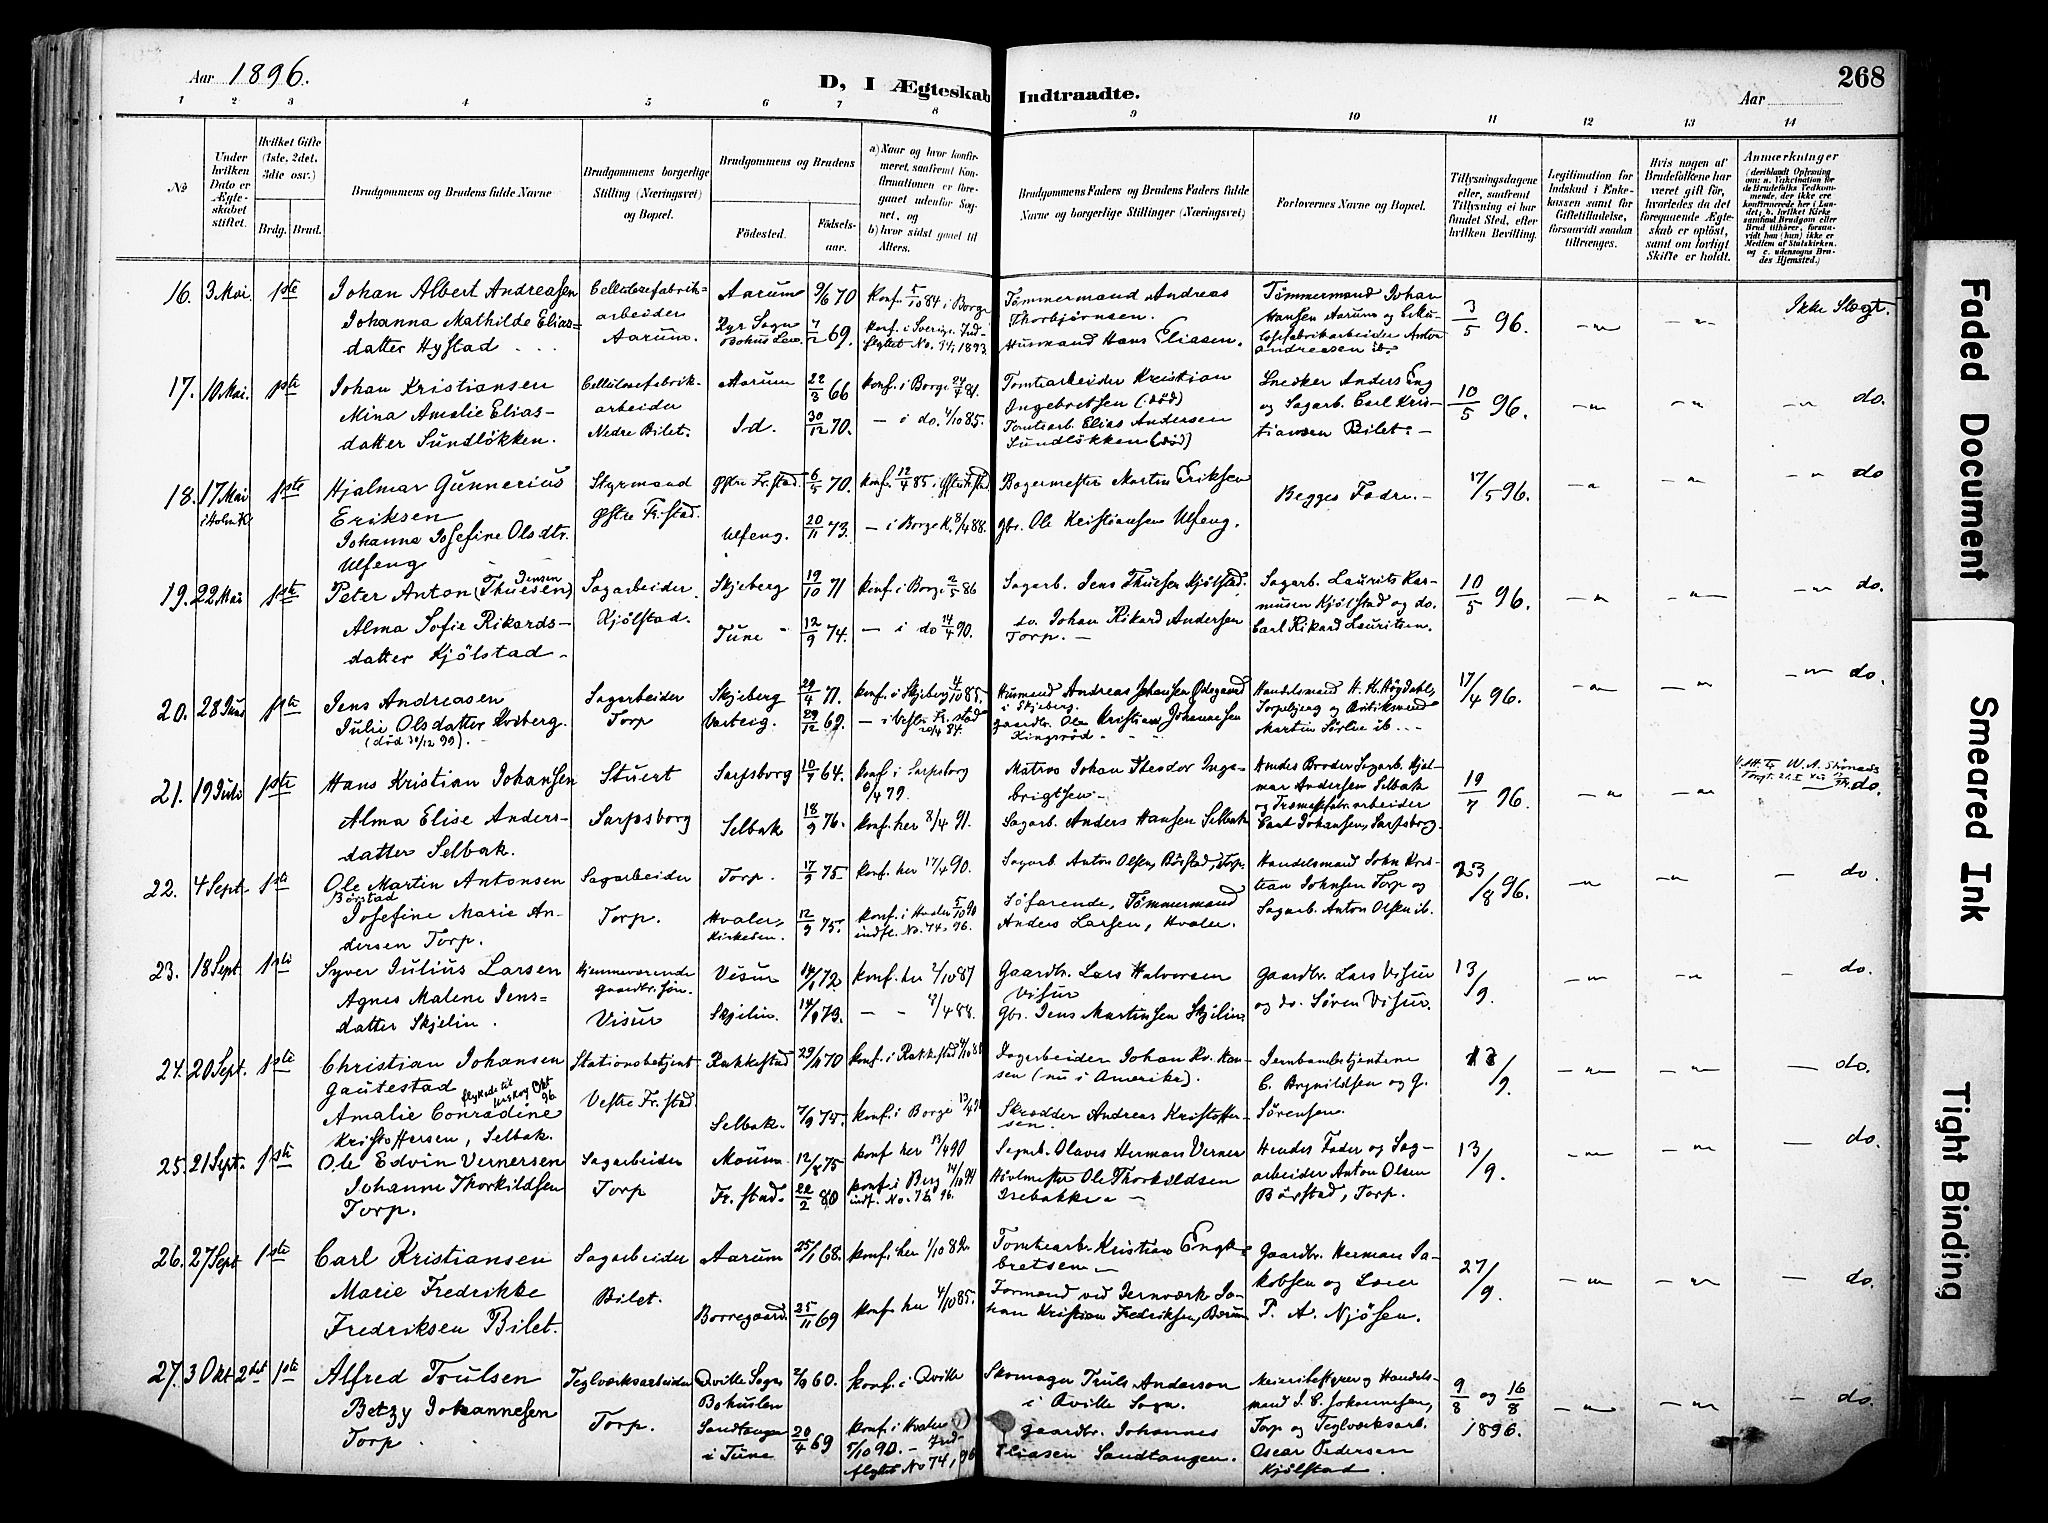 Aar 1896.
D, I Ægteskab Indtraadte.
Aar
268
1 2 3 4 5 6 7 8 9 10 11 12 13 14
No
Under hvilken Dato er Ægteskabet stiftet.
Hvilket Gifte (1ste, 2det, 3die osv.)
Brdg. Brud.
Brudgommens og Brudens fulde Navne
Brudgommens borgerlige Stilling (Næringsvei) og Bopæl.
Brudgommens og Brudens
Fødested. Fødselsaar.
a) Naar og hvor konfirmeret, saafremt Konfirmationen er foregaaet udenfor Sognet, og
b) hvor sidst gaaet til Alters.
Brudgommens Faders og Brudens Faders fulde Navne og borgerlige Stillinger (Næringsvei)
Forlovernes Navne og Bopæl.
Tillysningsdagene eller, saafremt Tillysning ei har fundet Sted, efter hvilken Bevilling.
Legitimation for Indskud i Enkekassen samt for Giftetilladelse, forsaavidt saadan tiltrænges.
Hvis nogen af Brudefolkene har været gift før, hvorledes da det foregaaende Ægteskab er opløst, samt om lovligt Skifte er holdt.
Anmærkninger
(deriblandt Oplysning om: a. Vakcination for de Brudefolks Vedkommende, der ikke ere konfirmerede her i Landet; b. hvilket Kirkesamfund Brudgom eller Brud tilhører, forsaavidt han (hun) ikke er Medlem af Statskirken, og c. udensogns Brudes Hjemsted.)
16. 3 Mai. 1ste Johan Albert Andreasen
Johanna Mathilde Eliasdatter Hystad
Cellulosefabrikarbeider Aarum.
Aarum 9/6 70 konf. 5/10 84 i Borge
7/2 69. konf. i Sverige. Indflyttet No. 34, 1893.
Tømmermand Andreas Thorbjørnsen.
Husmand Hans Eliasen.
Tømmermand Johan Hansen Aarum og Cellulosefabrikarbeider Anton Andreasen ib.
3/5 96. Ikke Slægt.
17. 10 Mai. 1ste Johan Kristiansen
Mina Amalie Eliasdatter Sundløkken.
Cellulosefabrikarbeider Nedre Bilet.
Aarum 22/3 66 konf. i Borge
Id. 30/12 70. – i do. 4/10 85.
Tomtearbeider Kristian Ingebretsen (død)
Tomtearb. Elias Andersen Sundløkken (død)
Snedker Anders Eng og Sagarb. Carl Kristiansen Bilet. –
10/5 96. do.
18. 17 Mai 1ste Hjalmar Gunnerius Eriksen
Johanne Josefine Olsdtr. Ulfeng
Styrmand Østre Fr.stad.
Østre Fr.stad. 6/5 70. konf. 12/4 85 i Østre Fr.stad
Ulfeng. 20/11 73. – i Borge K. 8/4 88.
Bagermester Martin Eriksen
gbr. Ole Kristiansen Ulfeng.
Begges Fædre. –
17/5 96. do
19. 22 Mai 1ste Peter Anton (Thuesen) Jensen
Alma Sofie Rikardsdatter Kjølstad –
Sagarbeider Kjølstad.
Skjeberg 19/10 71 konf. i Borge 2/5 86
Tune 12/9 74. – i do 14/4 90.
Sagarb. Jens Thuesen Kjølstad.
do. Johan Rikard Andersen Torp. –
Sagarb. Laurits Rasmusen Kjølstad og do. Carl Rikard Lauritsen.
10/5 96. do.
20. 28 Juni 1ste Jens Andreasen
Julie Olsdatter Kroberg.
(død 30/12 99).
Sagarbeider Torp
Skjeberg 29/4 71. konf. i Skjeberg 4/10 85.
Varteig. 29/12 69. – i Vestre Fr.stad 20/4 84.
Husmand Andreas Johansen Ødegaard i Skjeberg.
gaardbr. Ole Kristian Johannesen Kingsrød
Handelsmand H. K. Høgdahl, Torpebjerg og Butiksmand Martin Sørlie ib.
17/4 96. do.
21. 19 Juli 1ste Hans Kristian Johansen
Alma Elise Andersdatter Selbak.
Stuert Sarpsborg
Sarpsborg 10/9 64. konf. i Sarpsborg 6/4 79.
Selbak 18/9 76. konf. her 8/4 91.
Matros Johan Theodor Ingebrigtsen
Sagarb. Anders Hansen Selbak
Hendes Broder Sagarb. Hjalmar Andersen Selbak og Træmassefabr.arbeider Carl Johansen, Sarpsborg.
19/7 96. do.
22. 4 Sept. 1ste Ole Martin Antonsen Børstad
Josefine Marie Andersen Torp.
Sagarbeider Torp.
Torp. 17/9 75. konf. her 17/4 90.
Hvaler, Kirkeøen. 12/9 75. konf. i Hvaler 5/10 90 indfl. No. 74, 96.
Sagarb Anton Olsen, Børstad, i Torp.
Søfarende, Tømmermand Anders Larsen, Hvaler.
Handelsmand John Kristian Johnsen Torp og Sagarb. Anton Olsen ib.
23/8 96. do.
23. 18 Sept 1ste Syver Julius Larsen
Agnes Malene Jensdatter Skjelin.
Hjemmeværende gaardbr.søn. Visur
Visur 14/1 72 konf. her 2/10 87
Skjelin. 14/1 73. – – 8/4 88.
Gaardbr. Lars Halvorsen Visur
Gbr. Jens Martinsen Skjelin.
Gaardbr. Lars Visur og do. Søren Visur.
13/9. do.
24. 20 Sept. 1ste Christian Johansen Gautestad
Amalie Conradine Kristoffersen, Selbak.
Stationsbetjent Vestre Fr.stad.
Rakkestad 29/11 70 konf. i Rakkestad
Selbak. 7/9 75. konf. i Borge
Dagarbeider Johan Kr. Hansen (nu i Amerika).
Skrædder Andreas Kristoffersen.
Jernbanebetjentene C. Brynildsen og G. Sørensen.
13/9. do.
25. 21 Sept. 1ste Ole Edvin Vernersen
Johanne Thorkildsen Torp.
Sagarbeider Torp
Moum. 12/8 75 konf her 13/4 90
Fr.stad. 22/2 80 konf. i Berg 14/10 94 indf. No. 76, 96.
Sagarb. Olaves Herman Verner
Høvlmester Ole Thorkildsen Isebakke. –
Hendes Fader og Sagarbeider Anton Olsen Børstad, Torp.
13/9. do.
26. 27 Sept 1ste Carl Kristiansen
Marie Fredrikke Fredriksen Bilet.
Sagarbeider Bilet.
Aarum 25/1 68. konf. her 1/10 82.
Borregaard. 25/11 69 konf. her 4/10 85.
Tomtearb. Kristian Engebretsen –
Formand ved Jernværk Johan Kristian Fredriksen, Borum
Gaardbr. Herman Jakobsen og Lærer P. A. Njøsen.
27/9. do.
27. 3 Okt 2det 1ste Alfred Trulsen
Betzy Johannesen Torp
Teglværksarbeider Torp.
Qville Sogn Bohuslen 2/9 60. konf. i Qville
Sandtangen i Tune 20/4 69 konf. i Hvaler 5/10 90. – Indflyttet No 74, 96
Skomager Truls Anderson i Qville Sogn.
gaardbr. Johannes Eliasen Sandtangen.
Meieribestyrer og Handelsmand J. C. Johannesen, Torp og Teglværksarb. Oscar Pedersen Kjølstad.
9/8 og 16/8 1896. do.
Faded Document
Smeared Ink
Tight Binding